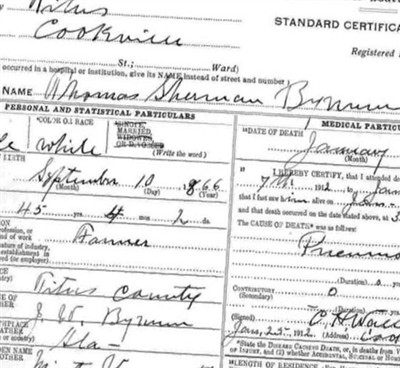 Titus
Cookville
STANDARD CERTIFICA
St.; Ward)
Registered
occurred in a hospital or institution, give its NAME instead of street and number
NAME Thomas Sherman Bynum
PERSONAL AND STATISTICAL PARTICULARS
MEDICAL PARTICU
COLOR OR RACE
white
SINGLE
MARRIED,
WIDOWED
OR DIVORCED
(Write the word)
DATE OF DEATH January
(Month)
BIRTH
September 10 1866
(Month) (Day) (Year)
I HEREBY CERTIFY, that I attended de
7th 1912 to Jan
that I last saw him alive on Jan
and that death occurred on the date stated above, at 3
45 yrs. 4 mos. 2 ds.
The CAUSE OF DEATH was as follows:
Pneumo
Farmer
nature of industry,
establishment in
ed (or employer)
(Duration) 0
CONTRIBUTORY 0
(Secondary)
(Duration)
Titus County
NAME OF
J W Bynum
(Signed)
Jan. 25 1912
State the DISEASE CAUSING DEATH, or, in deaths
OF INJURY, and (2) whether ACCIDENTAL, SUICIDAL or
Ala
LENGTH OF RESIDENCE